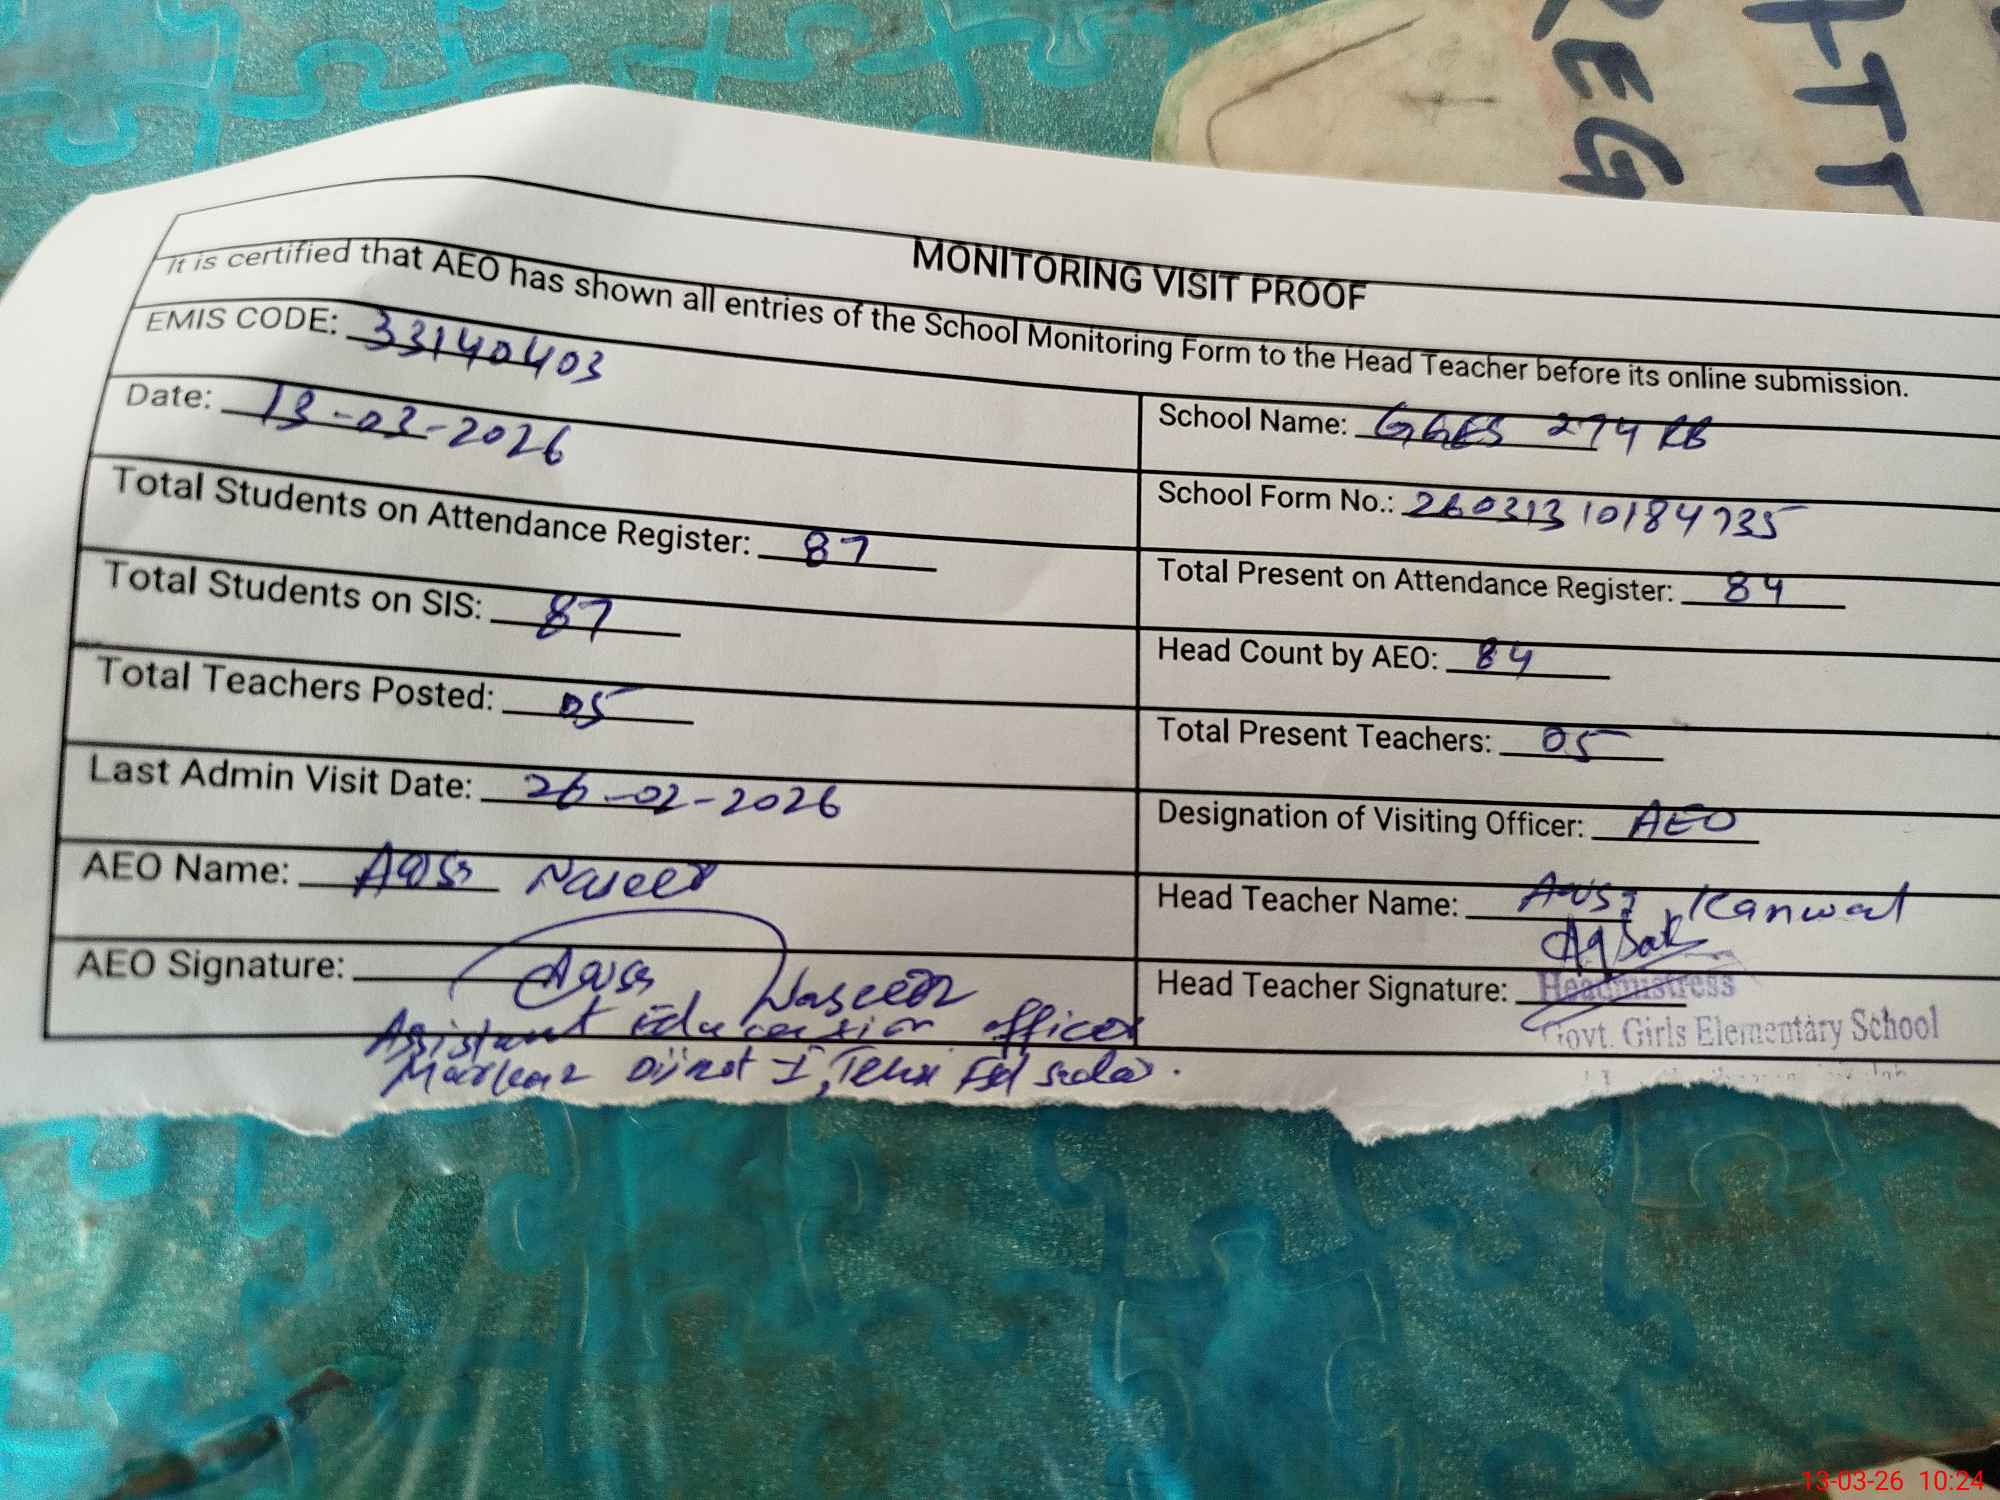 REG
ATT
MONITORING VISIT PROOF
It is certified that AEO has shown all entries of the School Monitoring Form to the Head Teacher before its online submission.
EMIS CODE: 33140403
School Name: GGES 274 RB
Date: 13-03-2026
School Form No.: 26031310184735
Total Students on Attendance Register: 87
Total Present on Attendance Register: 84
Total Students on SIS: 87
Head Count by AEO: 84
Total Teachers Posted: 05
Total Present Teachers: 05
Last Admin Visit Date: 26-02-2026
Designation of Visiting Officer: AEO
AEO Name: Naseer
Head Teacher Name: Kanwal
AEO Signature: Naseer
Head Teacher Signature:
Headmistress
Govt. Girls Elementary School
Assistant Education officer
Markaz I, Fsd sadar.
13-03-26 10:24